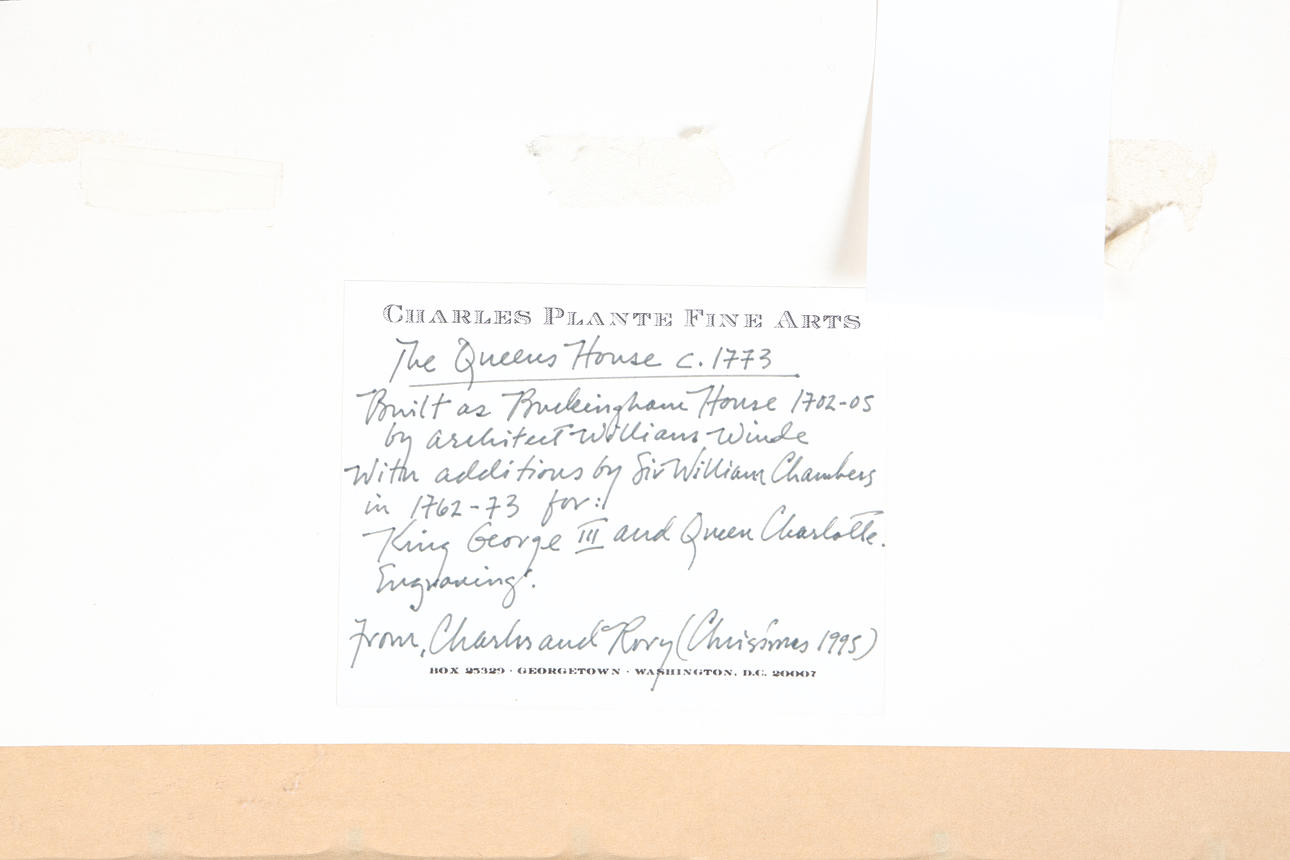 CHARLES PLANTE FINE ARTS
The Queens House c. 1773
Built as Buckingham House 1702-05
by architect William Winde
With additions by Sir William Chambers
in 1762-73 for:
King George III and Queen Charlotte.
Engraving.
From, Charles and Rory (Christmas 1995)
BOX 25329 · GEORGETOWN · WASHINGTON, D.C. 20007